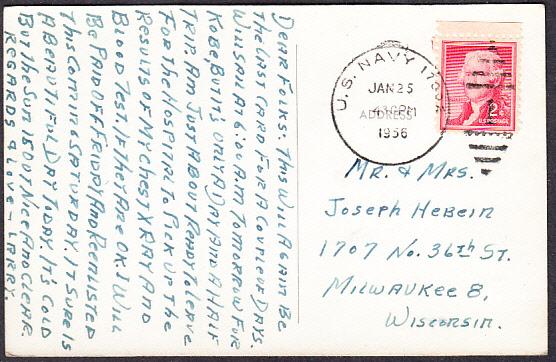 Dear Folks: This will again be
the last card for a couple of days.
Will sail at 10 AM tomorrow for
Kobe, but it's only a day and a half
trip. Am just about ready to leave
for the hospital to pick up the
results of my chest X ray and
blood test. If they are OK I will
be paid off Friday and reenlisted
this coming Saturday. It sure is
a beautiful day today. It's cold
but the sun is out nice and clear.
Regards & Love – Larry.
U.S. NAVY 17
JAN 25
PM
ADDRESS
1956
2¢
U.S. POSTAGE
Mr. & Mrs.
Joseph Hebein
1707 No. 36th St.
Milwaukee 8,
Wisconsin.